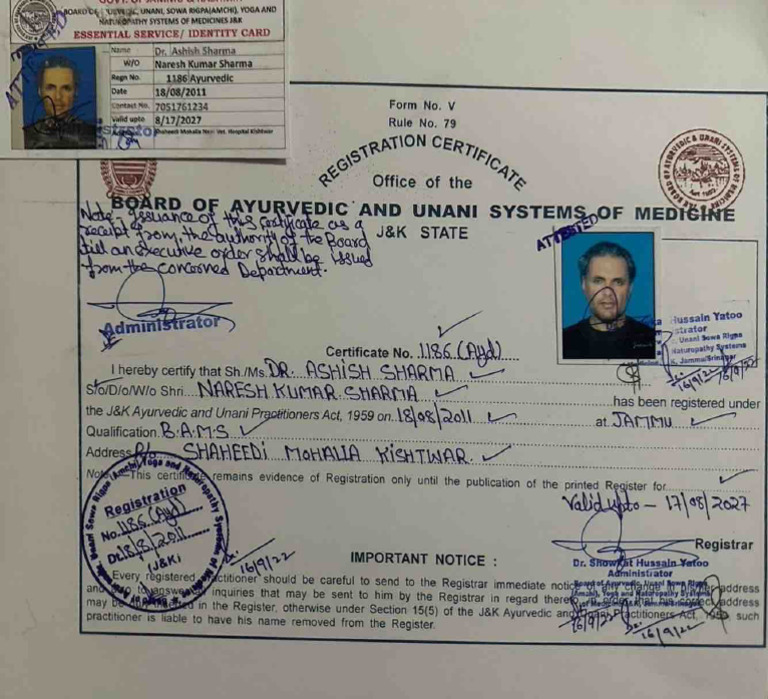 GOVT. OF JAMMU & KASHMIR
BOARD OF UNANI, SOWA RIGPA(AMCHI), YOGA AND
NATUROPATHY SYSTEMS OF MEDICINES J&K
ESSENTIAL SERVICE/ IDENTITY CARD
Name Dr. Ashish Sharma
W/O Naresh Kumar Sharma
Regn No. 1186 Ayurvedic
Date 18/08/2011
Contact No. 7051761234
Valid upto 8/17/2027
Shaheedi Mohalla Near Vet. Hospital Kishtwar
ATTESTED
Form No. V
Rule No. 79
REGISTRATION CERTIFICATE
Office of the
BOARD OF AYURVEDIC AND UNANI SYSTEMS OF MEDICINE
J&K STATE
Note: Issuance of this certificate as a
receipt from the authority of the Board
till an executive order shall be issued
from the concerned Department.
Administrator
ATTESTED
Hussain Yatoo
strator
Unani Sowa Rigpa
Naturopathy Systems
K, Jammu/Srinagar
16/9/22
Certificate No. 1186 (Ayd)
I hereby certify that Sh./Ms. DR. ASHISH SHARMA
S/o/D/o/W/o Shri NARESH KUMAR SHARMA has been registered under
the J&K Ayurvedic and Unani Practitioners Act, 1959 on 18/08/2011 at JAMMU
Qualification B.A.M.S
Address R/o SHAHEEDI MOHALLA KISHTWAR.
Note This certificate remains evidence of Registration only until the publication of the printed Register for
Valid upto - 17/08/2027
Registration
No. 1186 (Ayd)
Dt. 18/8/2011
(J&K)
16/9/22
Registrar
Dr. Showkat Hussain Yatoo
Administrator
IMPORTANT NOTICE :
Every registered practitioner should be careful to send to the Registrar immediate notice of any change in address
and also to answer inquiries that may be sent to him by the Registrar in regard thereto in order that his correct address
may be in the Register, otherwise under Section 15(5) of the J&K Ayurvedic and Practitioners Act, such
practitioner is liable to have his name removed from the Register.
16/9/22